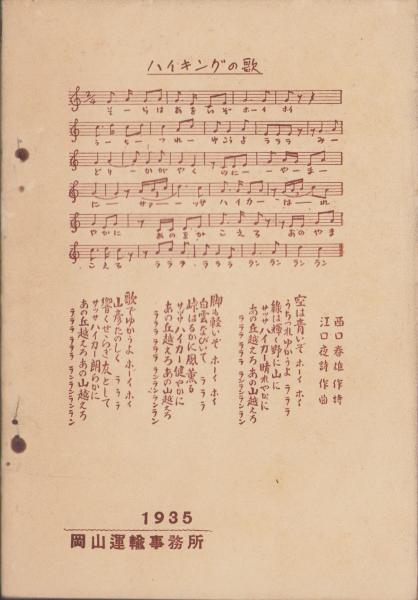 ハイキングの歌
そーらはあをいぞホーイホイ
うーちーつれーゆこうよラララみー
どりーかがやくのにーーやまー
にーサァーーッサハイカーはーれ
やかにあのをかこえろあのやま
こえろラララララランランラン
西口春雄作詩
江口夜詩作曲
空は青いぞホーイホイ
うちつれゆかうよラララ
緑は輝く野に山に
サッサハイカー晴れやかに
あの丘越えろあの山越えろ
ラララララランランラン
脚も軽いぞホーイホイ
白雲なびいてラララ
峠はるかに風薫る
サッサハイカー健やかに
あの丘越えろあの山越えろ
ラララララランランラン
歌でゆかうよホーイホイ
山彦たのしくラララ
響くせせらぎ友として
サッサハイカー朗らかに
あの丘越えろあの山越えろ
ラララララランランラン
1935
岡山運輸事務所